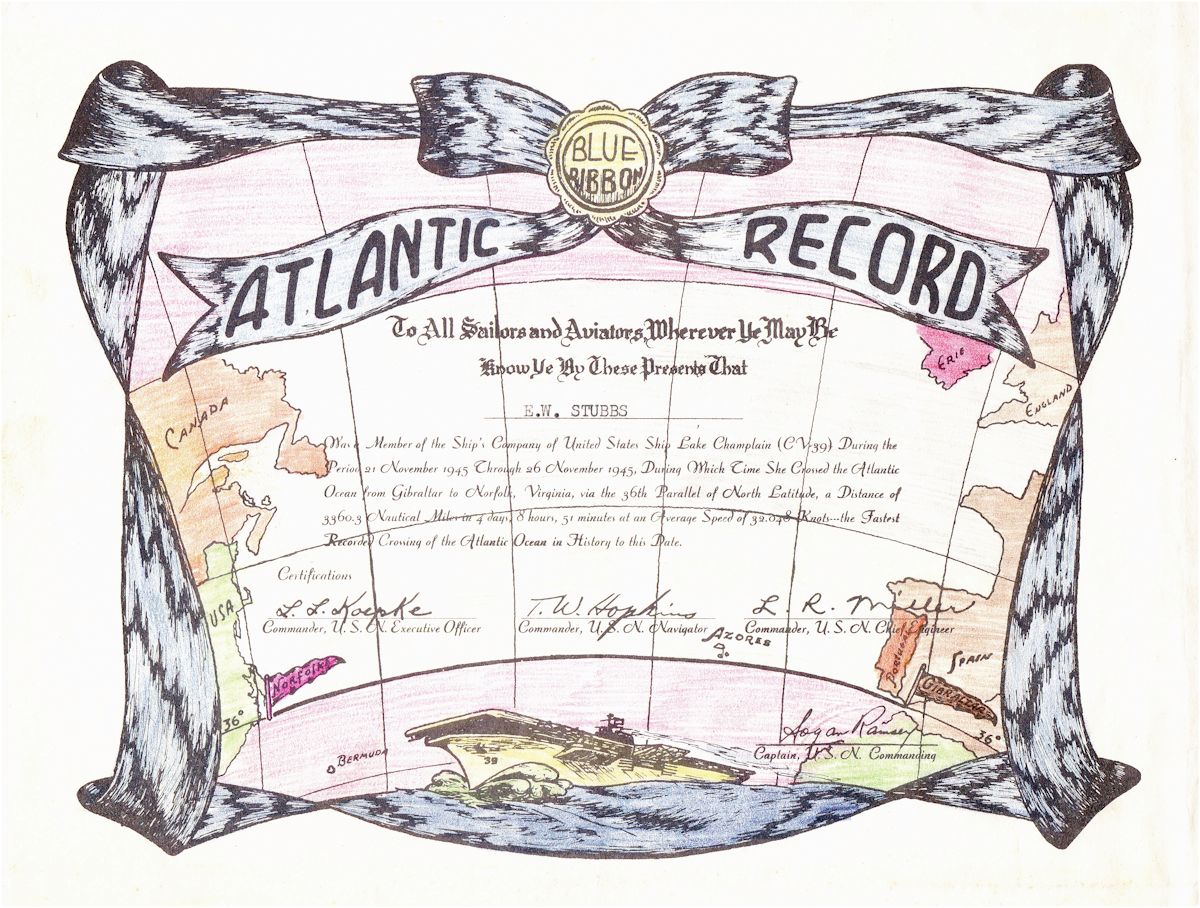 BLUE
RIBBON
ATLANTIC RECORD
To All Sailors and Aviators, Wherever Ye May Be
Know Ye By These Presents That
E.W. STUBBS
Was a Member of the Ship's Company of United States Ship Lake Champlain (CV-39) During the
Period 21 November 1945 Through 26 November 1945, During Which Time She Crossed the Atlantic
Ocean from Gibraltar to Norfolk, Virginia, via the 36th Parallel of North Latitude, a Distance of
3360.3 Nautical Miles in 4 days, 8 hours, 51 minutes at an Average Speed of 32.048 Knots---the Fastest
Recorded Crossing of the Atlantic Ocean in History to this Date.
Certifications
L. L. Koepke
Commander, U. S. N. Executive Officer
T. W. Hopkins
Commander, U. S. N. Navigator
L. R. Miller
Commander, U. S. N. Chief Engineer
Logan Ramsey
Captain, U. S. N. Commanding
CANADA
USA
NORFOLK
36°
BERMUDA
39
AZORES
ERIE
ENGLAND
PORTUGAL
SPAIN
GIBRALTAR
36°